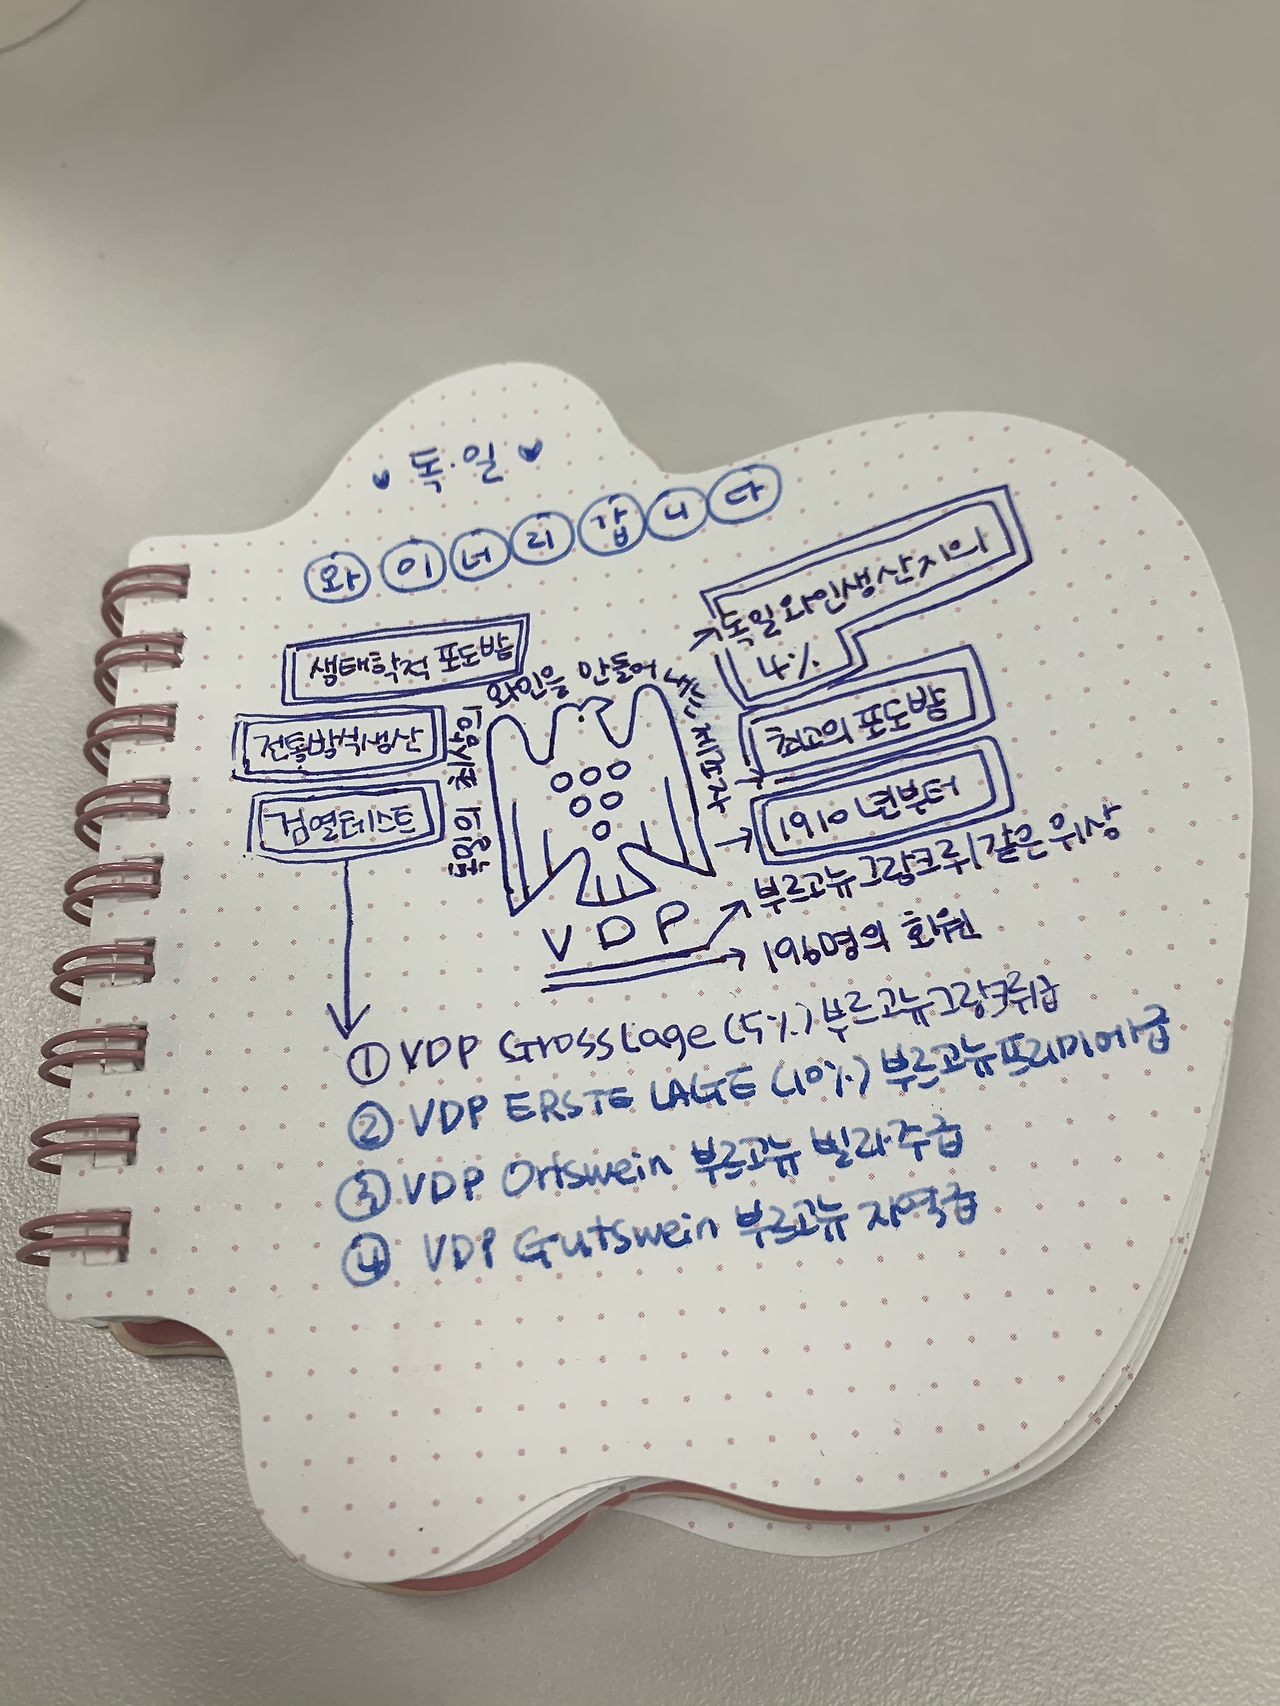 독·일
와이너리갑니다
독일와인생산지의
4%
생태학적 포도밭
와인을 만들어 내는 제조자
최고의 포도밭
전통방식생산
1910년부터
검열테스트
부르고뉴그랑크뤼같은위상
VDP
196명의 회원
① VDP Grosslage (5%) 부르고뉴그랑크뤼급
② VDP ERSTE LAGE (10%) 부르고뉴프리미에급
③ VDP Ortswein 부르고뉴 빌라주급
④ VDP Gutswein 부르고뉴 지역급